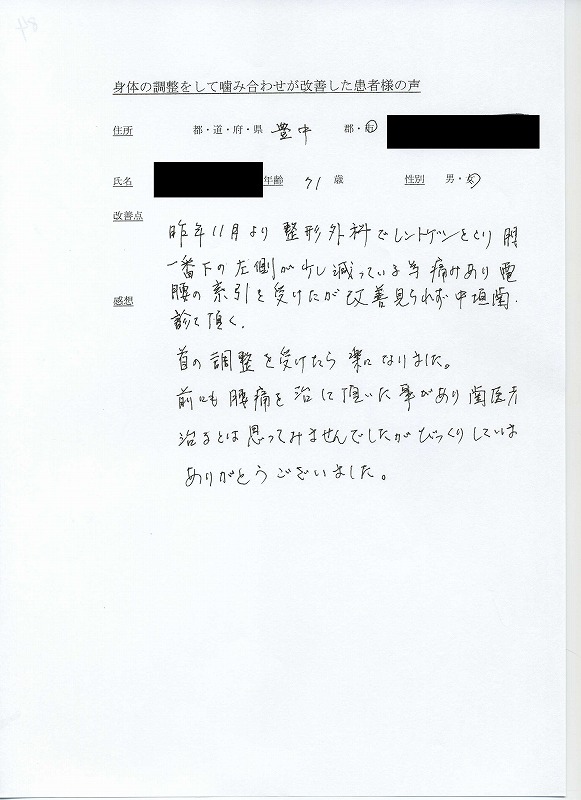 身体の調整をして噛み合わせが改善した患者様の声
住所 都・道・府・県 豊中 郡・市
氏名 年齢 71 歳 性別 男・女
改善点
昨年11月より 整形外科でレントゲンをとり
一番下の左側が少し減っている 痛みあり
感想
腰の牽引を受けたが改善見られず中垣歯
診て頂く。
首の調整を受けたら楽になりました。
前にも腰痛を治して頂いた事があり歯医者
治るとは思ってみませんでしたがびっくりしていま
ありがとうございました。